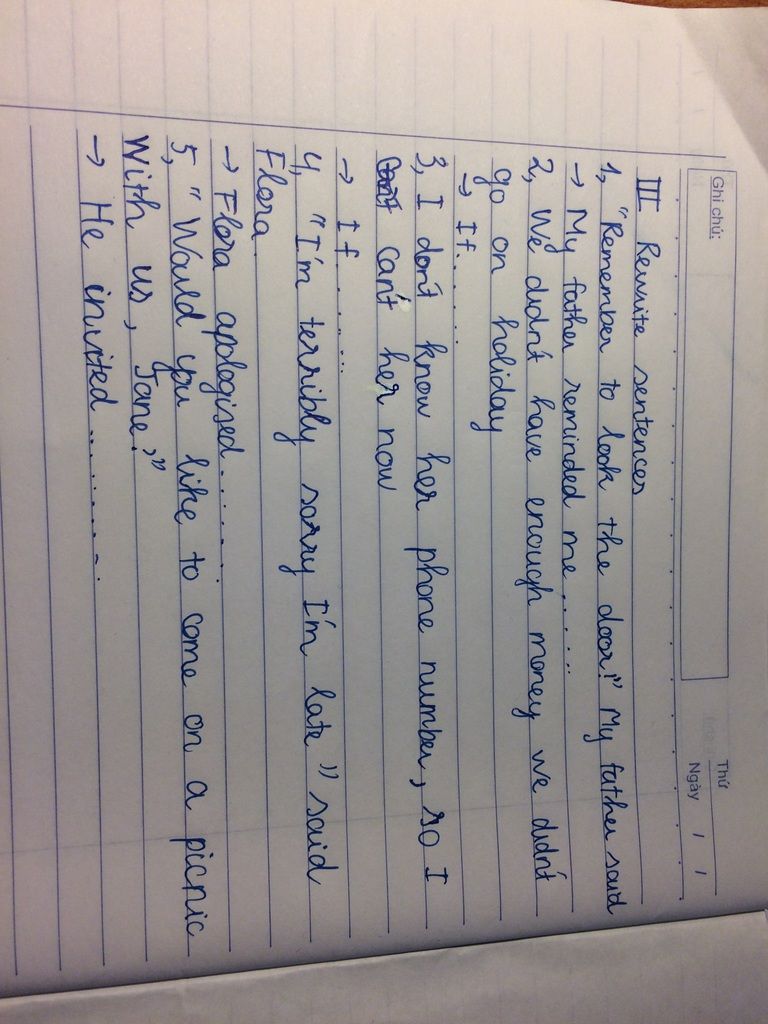 Ghi chú:
Thứ
Ngày / /
III Rewrite sentences
1, "Remember to look the door!" My father said
→ My father reminded me......
2, We didn't have enough money we didn't
go on holiday
→ If......
3, I don't know her phone number, so I
can't her now
→ If......
4, "I'm terribly sorry I'm late" said
Flora.
→ Flora apologised.......
5, "Would you like to come on a picnic
With us, Jane?"
→ He invited..........